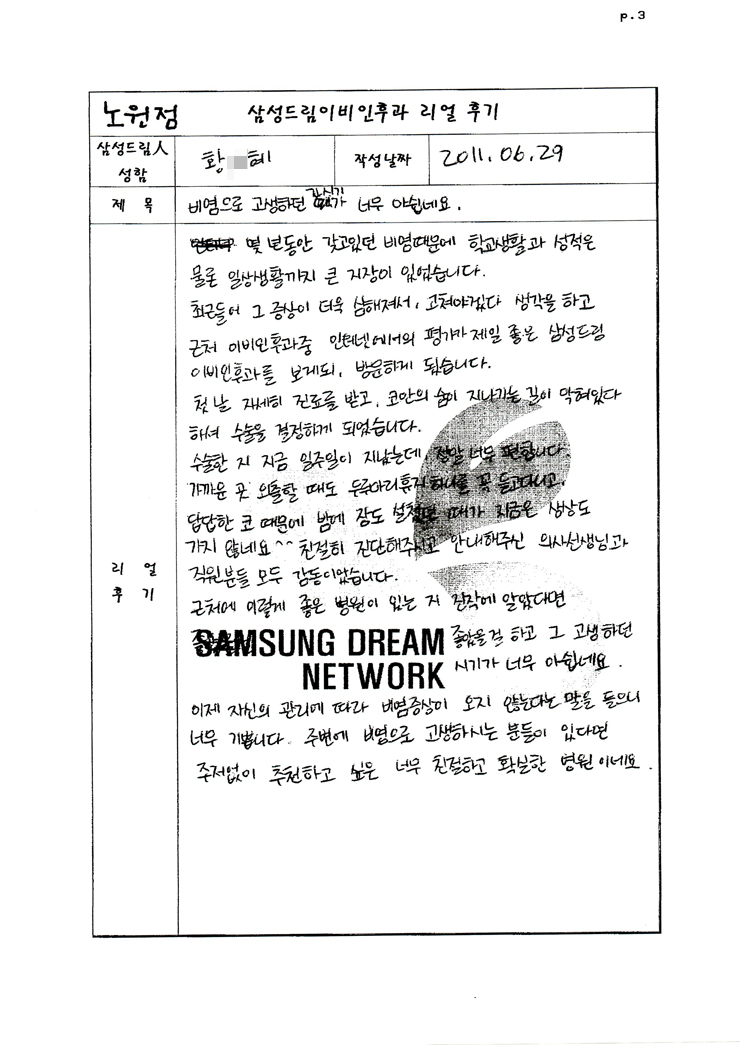 p.3
노원점 삼성드림이비인후과 리얼 후기
삼성드림人
성함
황 혜
작성날짜
2011.06.29
제 목
비염으로 고생하던 가 너무 아쉽네요.
몇 년동안 갖고있던 비염때문에 학교생활과 성적은
물론 일상생활까지 큰 지장이 있었습니다.
최근들어 그 증상이 더욱 심해져서, 고쳐야겠다 생각을 하고
근처 이비인후과중 인터넷에서의 평가가 제일 좋은 삼성드림
이비인후과를 보게되, 방문하게 됬습니다.
첫날 자세히 진료를 받고, 코안의 숨이 지나가는 길이 막혀있다
하셔 수술을 결정하게 되었습니다.
수술한 지 지금 일주일이 지났는데, 정말 너무 편합니다.
가까운 곳 외출할 때도 두루마리휴지 하나를 꼭 들고다니고,
답답한 코 때문에 밤에 잠도 설쳤던 때가 지금은 상상도
가지 않네요^^ 친절히 진단해주시고 안내해주신 의사선생님과
직원분들 모두 감동이었습니다.
리 얼
후 기
근처에 이렇게 좋은 병원이 있는 지 진작에 알았다면
좋았을걸 하고 그 고생하던
SAMSUNG DREAM
NETWORK
시기가 너무 아쉽네요.
이제 자신의 관리에 따라 비염증상이 오지 않는다는 말을 들으니
너무 기쁩니다. 주변에 비염으로 고생하시는 분들이 있다면
주저없이 추천하고 싶은 너무 친절하고 확실한 병원이네요.